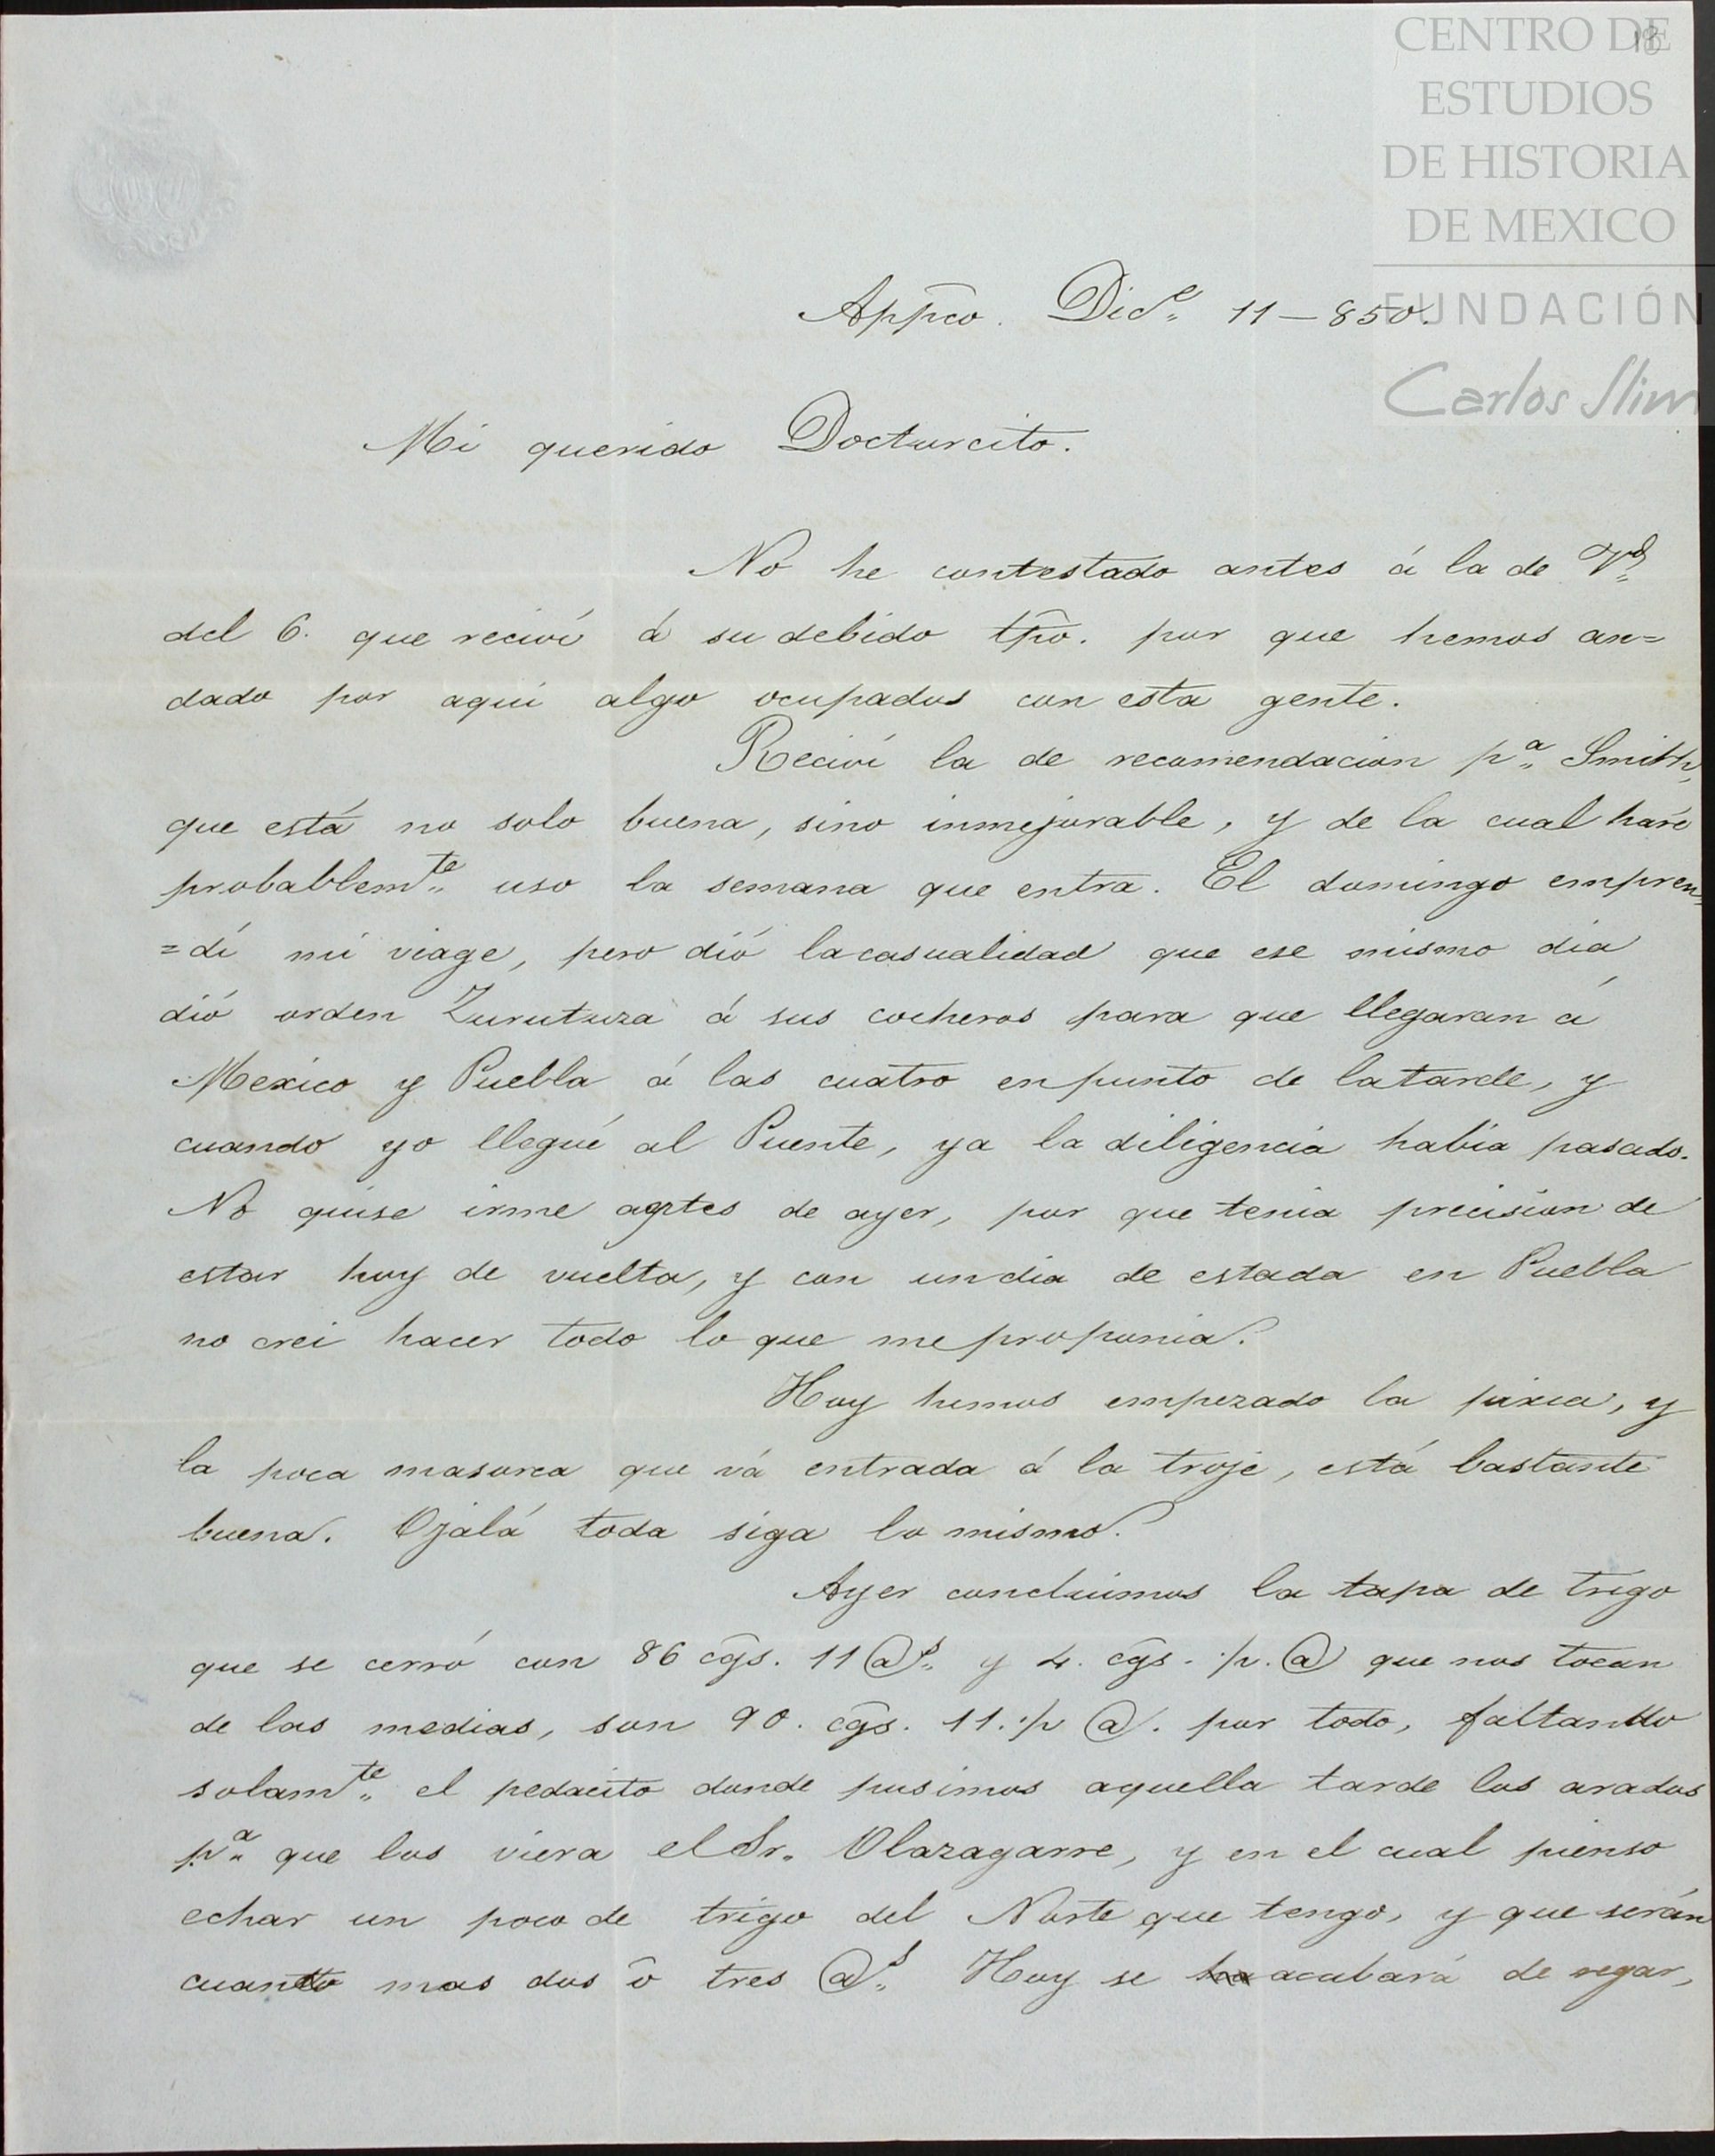 CENTRO DE
ESTUDIOS
DE HISTORIA
DE MEXICO
FUNDACIÓN
Carlos Slim
Appco. Dice. 11—850.
Mi querido Doctorcito.
No he contestado antes á la de Vd.
del 6. que reciví á su debido tpo. por que hemos an=
dado por aqui algo ocupados con esta gente.
Reciví la de recomendacion pa. Smith,
que está no solo buena, sino inmejorable, y de la cual haré
probablemte. uso la semana que entra. El domingo empren
=dí mi viage, pero dió la casualidad que ese mismo dia
dió orden Zurutuza á sus cocheros para que llegaran á
Mexico y Puebla á las cuatro en punto de la tarde, y
cuando yo llegué al Puente, ya la diligencia habia pasado.
No quise irme antes de ayer, por que tenia precision de
estar hoy de vuelta, y con un dia de estada en Puebla
no crei hacer todo lo que me proponia.
Hoy hemos empezado la pixca, y
la poca masorca que vá entrada á la troje, está bastante
buena. Ojalá toda siga lo mismo.
Ayer concluimos la tapa de trigo
que se cerró con 86 cgs. 11 @s. y 4. cgs. p. @ que nos tocan
de las medias, son 90. cgs. 11. p @. por todo, faltando
solamte. el pedacito donde pusimos aquella tarde los arados
pa. que los viera el Sr. Olazagarre, y en el cual pienso
echar un poco de trigo del Norte que tengo, y que serán
cuanto mas dos ó tres @s. Hoy se acabará de regar,